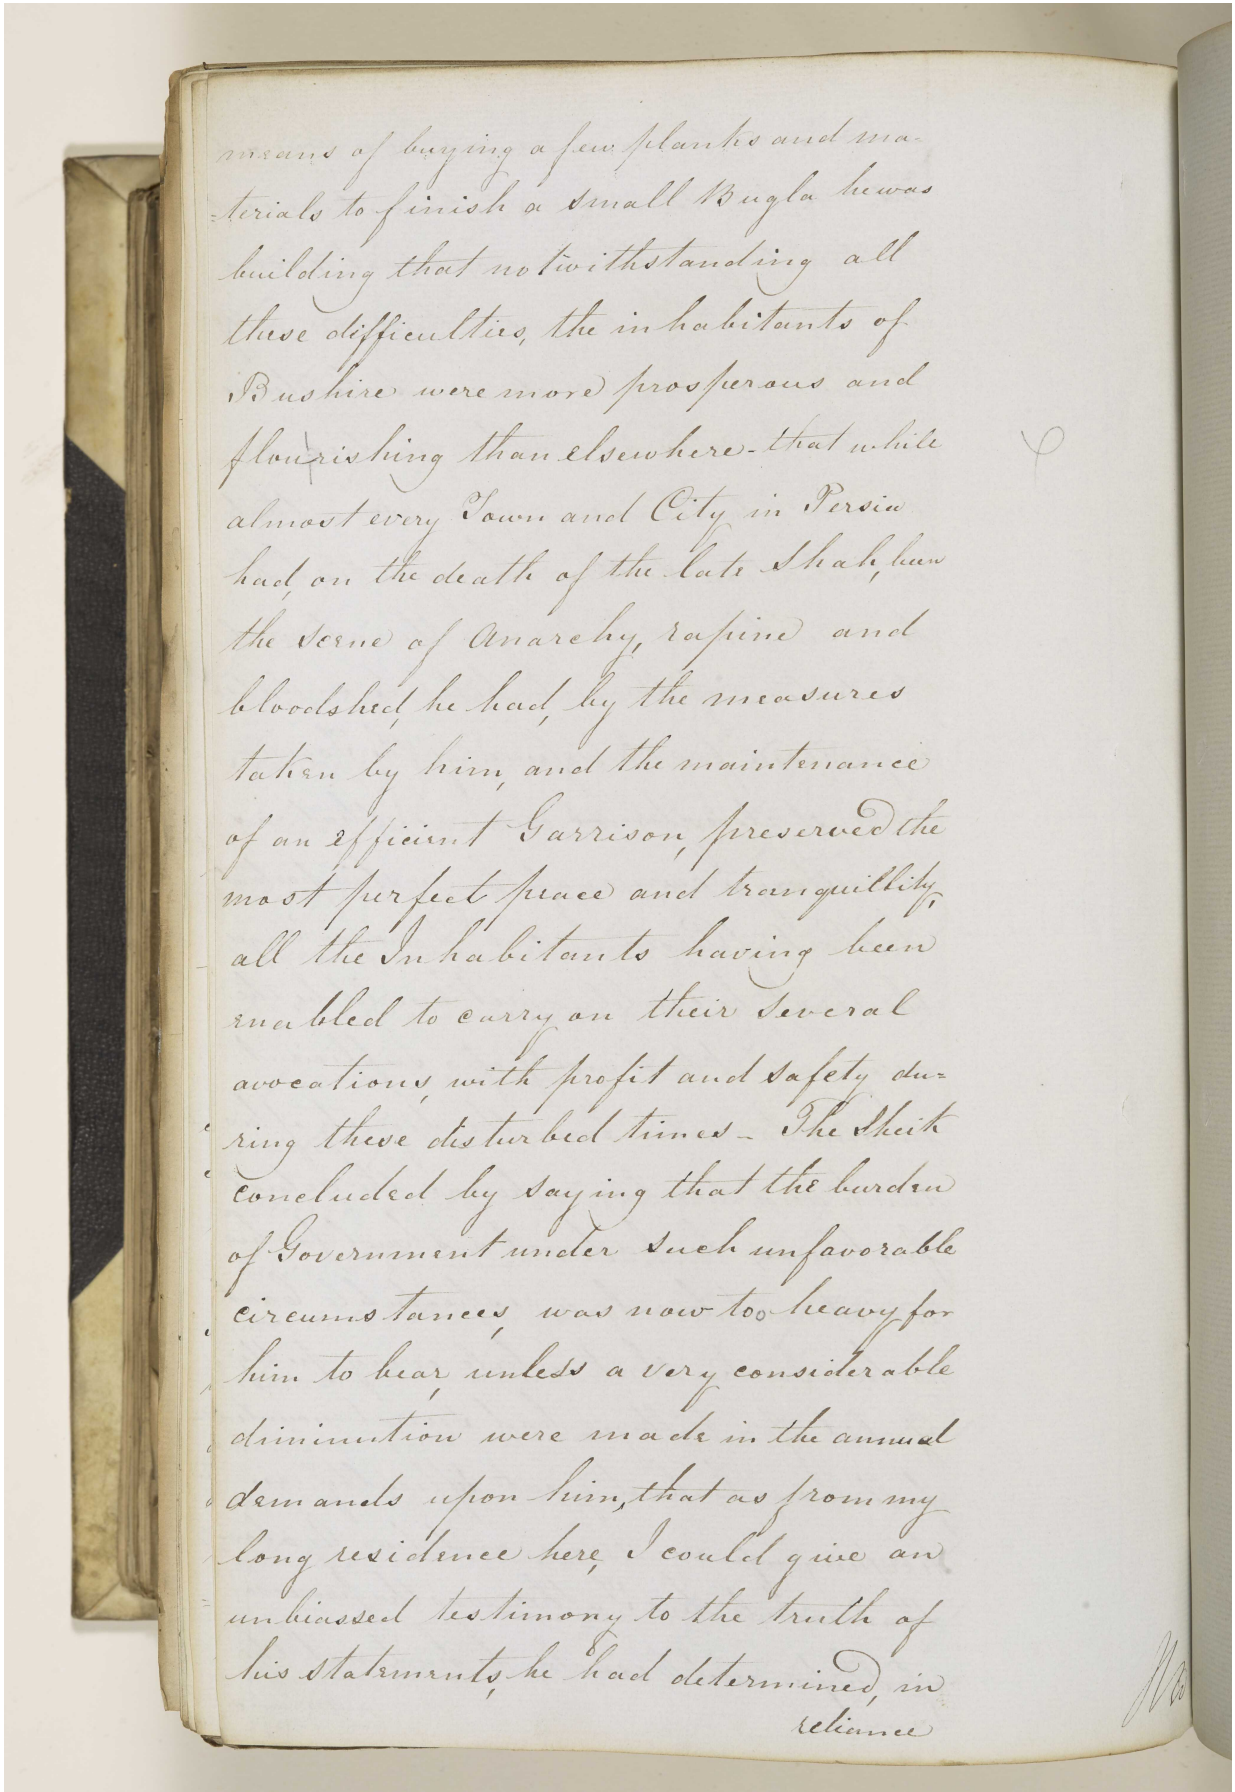 means of buying a few planks and ma-
=terials to finish a small Bugla he was
building that notwithstanding all
these difficulties, the inhabitants of
Bushire were more prosperous and
flourishing than elsewhere - that while
almost every Town and City in Persia
had, on the death of the late Shah, been
the scene of Anarchy, rapine and
bloodshed, he had, by the measures
taken by him, and the maintenance
of an efficient Garrison, preserved the
most perfect peace and tranquillity,
all the Inhabitants having been
enabled to carry on their several
avocations, with profit and safety du=
ring these disturbed times - The Sheik
concluded by saying that the burden
of Government under such unfavorable
circumstances, was now too heavy for
him to bear, unless a very considerable
diminution were made in the annual
demands upon him, that as from my
long residence here, I could give an
unbiassed testimony to the truth of
his statements, he had determined, in
reliance